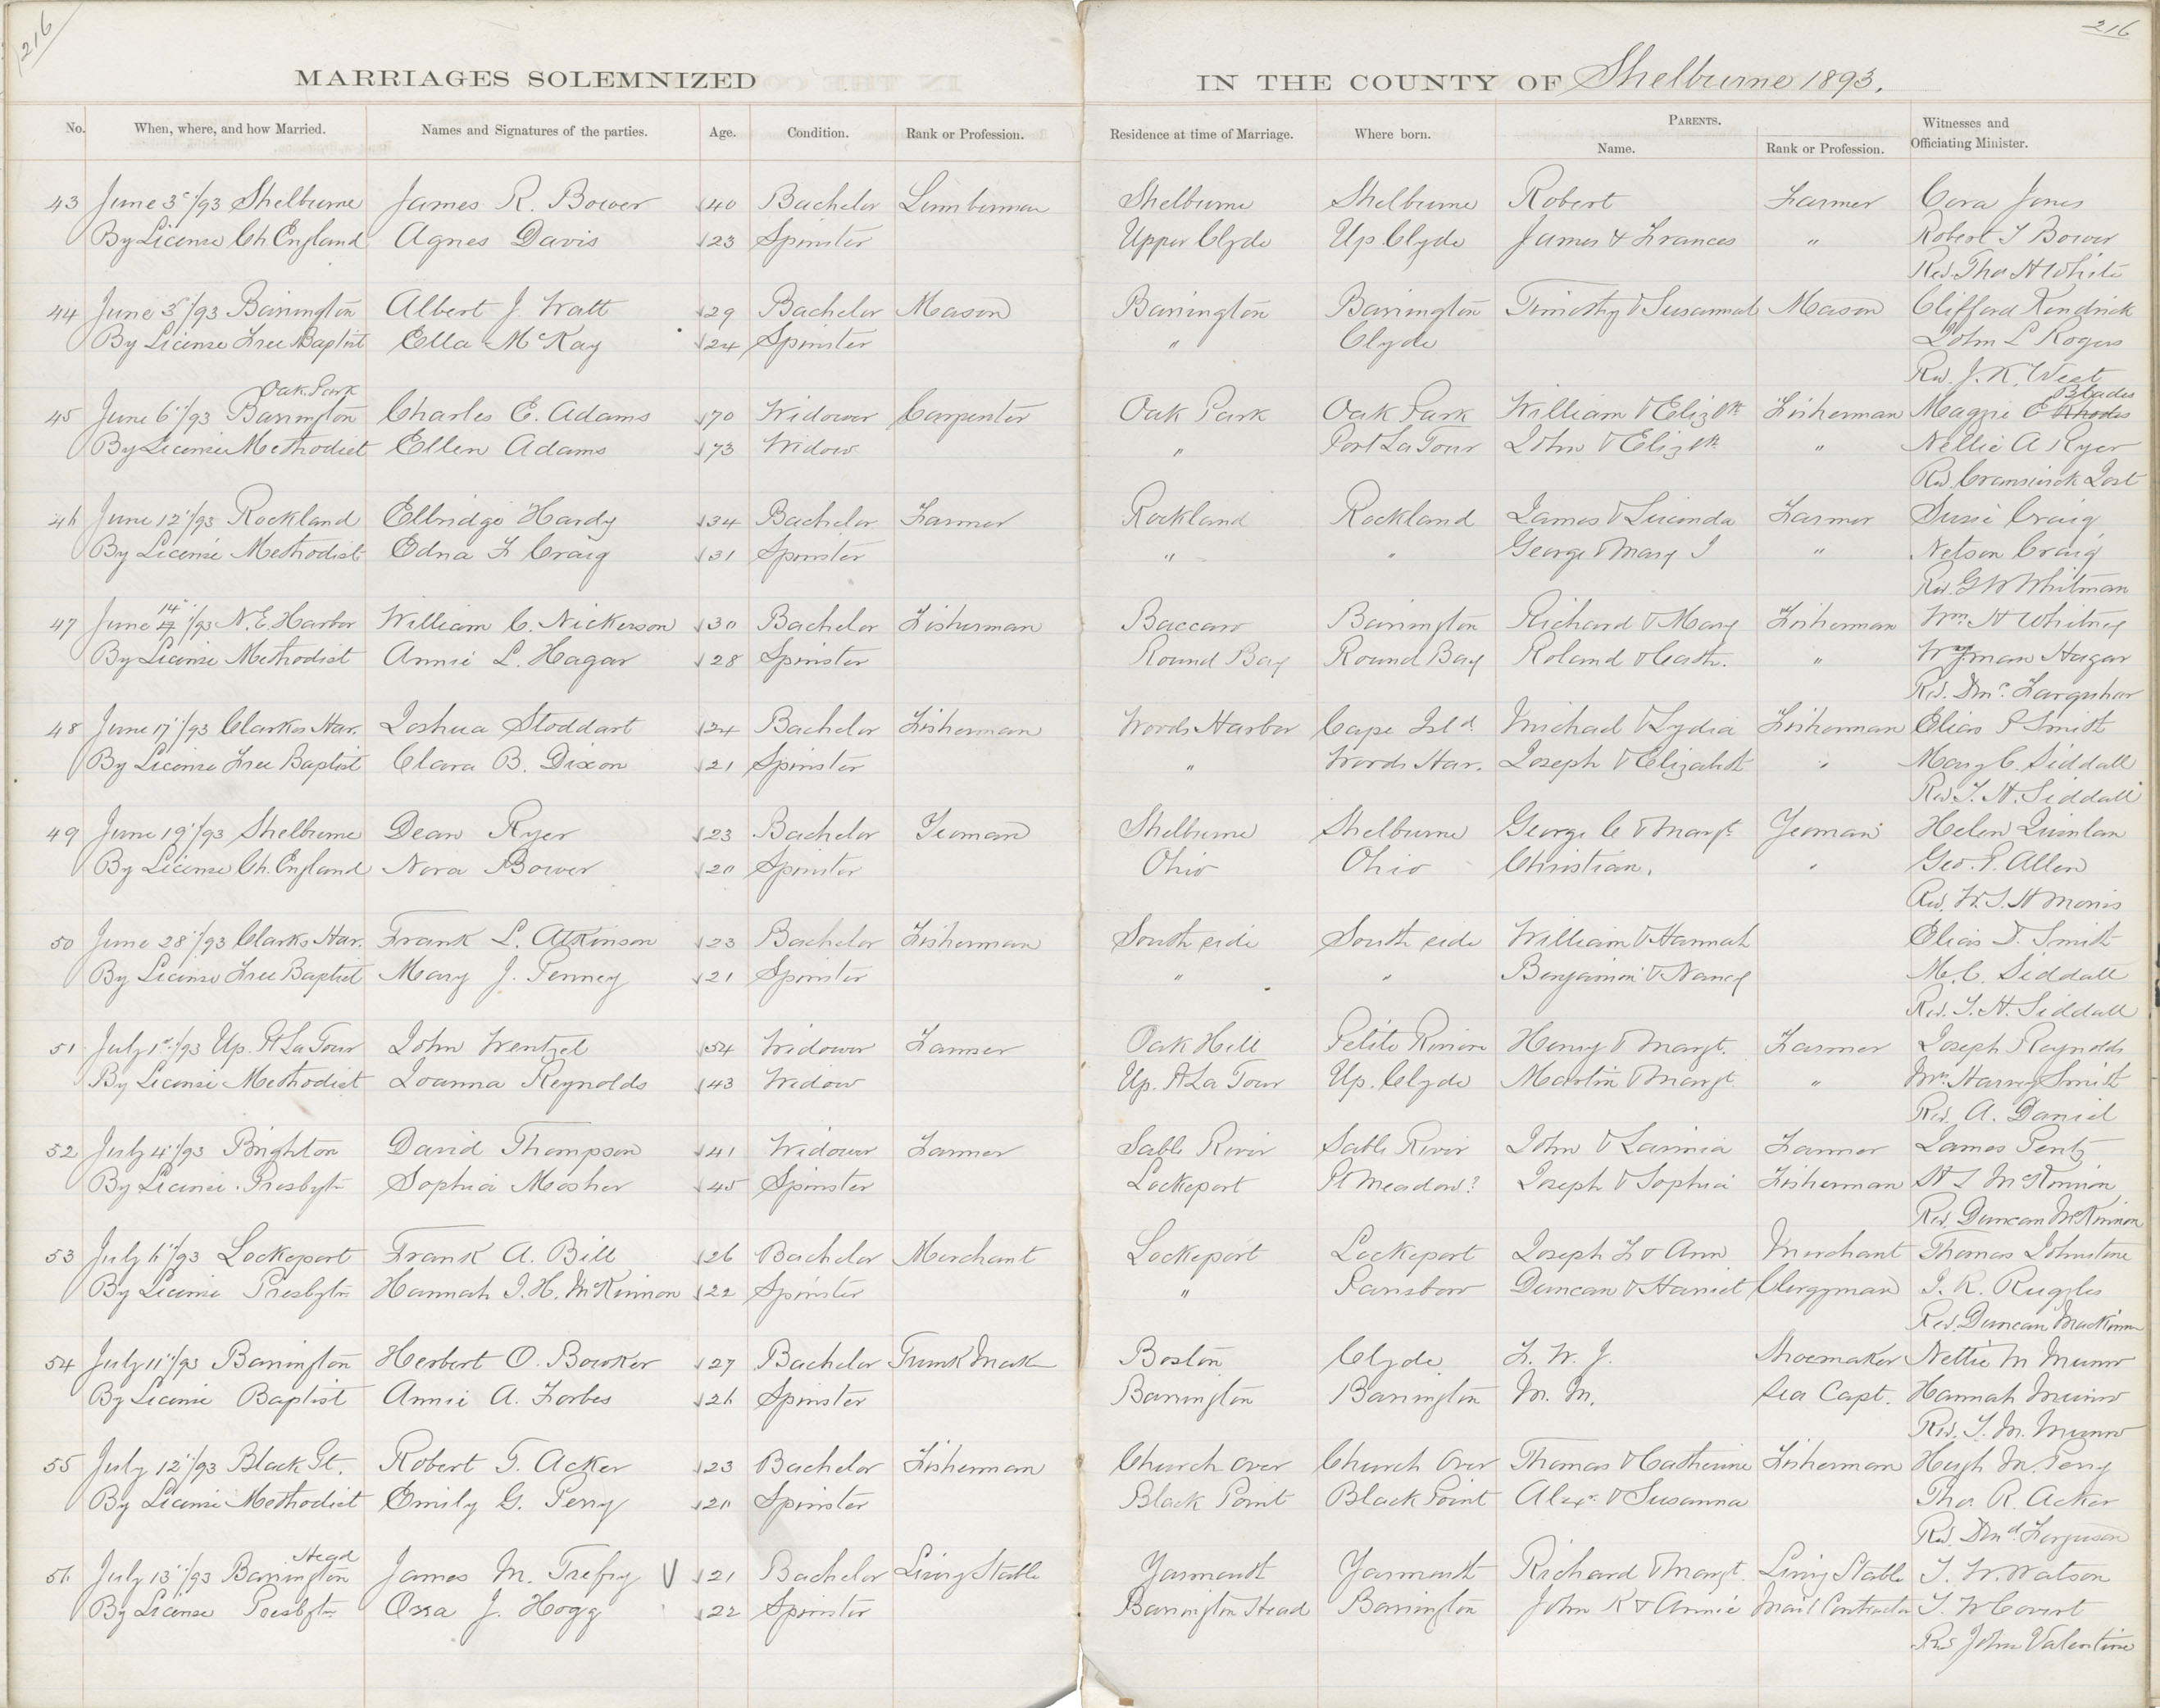 216
216
MARRIAGES SOLEMNIZED IN THE COUNTY OF Shelburne 1893.
No. When, where, and how Married. Names and Signatures of the parties. Age. Condition. Rank or Profession. Residence at time of Marriage. Where born. PARENTS. Name. Rank or Profession. Witnesses and Officiating Minister.
43 June 3"/93 Shelburne James R. Bower 40 Bachelor Lumberman Shelburne Shelburne Robert Farmer Cora Jones
By License Ch. England Agnes Davis 23 Spinster Upper Clyde Up. Clyde James & Frances " Robert T Bower
Rev. Tho H White
44 June 5"/93 Barrington Albert J. Watt 29 Bachelor Mason Barrington Barrington Timothy & Susannah Mason Clifford Kendrick
By License Free Baptist Ella McKay 24 Spinster " Clyde John L Rogers
Rev. J. K. West
Oak Park Blades
45 June 6"/93 Barrington Charles E. Adams 70 Widower Carpenter Oak Park Oak Park William & Elizth Fisherman Maggie E Rhodes
By License Methodist Ellen Adams 73 Widow " Port La Tour John & Elizth " Nellie A Ryer
Rev. Cranswick Jost
46 June 12"/93 Rockland Elbridge Hardy 34 Bachelor Farmer Rockland Rockland James & Lucinda Farmer Susie Craig
By License Methodist Edna F Craig 31 Spinster " " George & Mary J " Nelson Craig
Rev. G W Whitman
14"
47 June "/93 N.E. Harbor William C. Nickerson 30 Bachelor Fisherman Baccaro Barrington Richard & Mary Fisherman Wm. H Whitney
By License Methodist Annie L. Hagar 28 Spinster Round Bay Round Bay Roland & Cath. " Wyman Hagar
Rev. Dmc. Farquhar
48 June 17"/93 Clarks Har. Joshua Stoddart 24 Bachelor Fisherman Woods Harbor Cape Isld Michael & Lydia Fisherman Elias P Smith
By License Free Baptist Clara B. Dixon 21 Spinster " Woods Har. Joseph & Elizabeth " Mary C. Siddall
Rev. T. H. Siddall
49 June 19"/93 Shelburne Dean Ryer 23 Bachelor Yeoman Shelburne Shelburne George C & Margt. Yeoman Helen Quinlan
By License Ch. England Nora Bower 20 Spinster Ohio Ohio Christian. " Geo. P. Allen
Rev. W. S. H Morris
50 June 28"/93 Clarks Har. Frank L. Atkinson 23 Bachelor Fisherman South side South side William & Hannah Elias D. Smith
By License Free Baptist Mary J. Penney 21 Spinster " " Benjamin & Nancy M. C. Siddall
Rev. T. H. Siddall
51 July 1st/93 Up. Pt La Tour John Wentzel 54 Widower Farmer Oak Hill Petite Riviere Henry & Margt. Farmer Joseph Reynolds
By License Methodist Joanna Reynolds 43 Widow Up. Pt La Tour Up. Clyde Martin & Margt " Mrs. Harvey Smith
Rev. A. Daniel
52 July 4"/93 Brighton David Thompson 41 Widower Farmer Sable River Sable River John & Lavinia Farmer James Pentz
By License Presbytn Sophia Mosher 45 Spinster Lockeport Pt Meadow? Joseph & Sophia Fisherman H L McKinnon
Rev. Duncan McKinnon
53 July 6"/93 Lockeport Frank A. Bill 26 Bachelor Merchant Lockeport Lockeport Joseph F & Ann Merchant Thomas Johnstone
By License Presbytn Hannah J. H. McKinnon 22 Spinster " Parrsboro Duncan & Harriet Clergyman J. R. Ruggles
Rev. Duncan MacKinnon
54 July 11"/93 Barrington Herbert O. Bowker 27 Bachelor Trunk Mak Boston Clyde F. W. J. Shoemaker Nettie M Munro
By License Baptist Annie A. Forbes 26 Spinster Barrington Barrington M. M. Sea Capt. Hannah Munro
Rev. T. M. Munro
55 July 12"/93 Black Pt. Robert T. Acker 23 Bachelor Fisherman Church Over Church Over Thomas & Catherine Fisherman Hugh M. Perry
By License Methodist Emily G. Perry 20 Spinster Black Point Black Point Alexr. & Susanna Tho. R. Acker
Rev. Dmd Ferguson
Head
56 July 13"/93 Barrington James M. Trefry 21 Bachelor Livery Stable Yarmouth Yarmouth Richard & Margt. Livery Stable T. W. Watson
By License Presbytn Ossa J. Hogg 22 Spinster Barrington Head Barrington John K & Annie Mail Contractor T. W Covert
Rev John Valentine